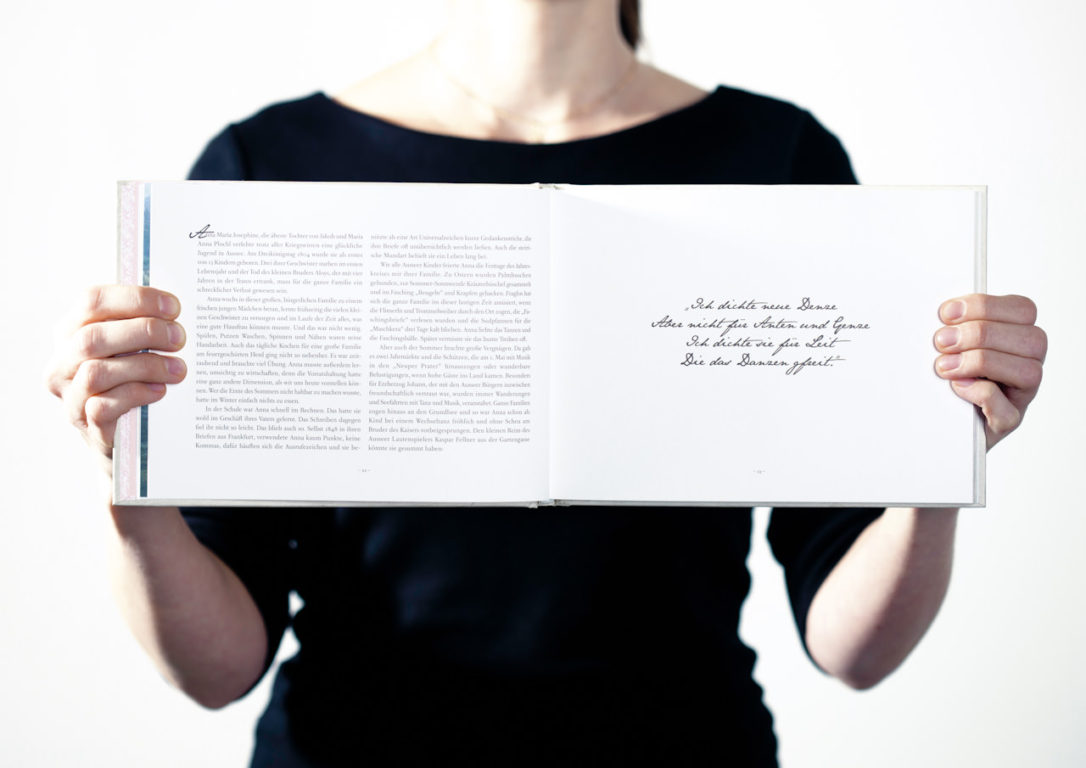 Anna Maria Josephine, die älteste Tochter von Jakob und Maria
Anna Plochl verlebte trotz aller Kriegswirren eine glückliche
Jugend in Aussee. Am Dreikönigstag 1804 wurde sie als erstes
von 13 Kindern geboren. Drei ihrer Geschwister starben im ersten
Lebensjahr und der Tod des kleinen Bruders Aloys, der mit vier
Jahren in der Traun ertrank, muss für die ganze Familie ein
schrecklicher Verlust gewesen sein.
Anna wuchs in dieser großen, bürgerlichen Familie zu einem
feschen jungen Mädchen heran, lernte frühzeitig die vielen klei-
nen Geschwister zu versorgen und im Laufe der Zeit alles, was
eine gute Hausfrau können musste. Und das war nicht wenig.
Spülen, Putzen Waschen, Spinnen und Nähen waren reine
Handarbeit. Auch das tägliche Kochen für eine große Familie
am feuergeschürten Herd ging nicht so nebenher. Es war zeit-
raubend und brauchte viel Übung. Anna musste außerdem ler-
nen, umsichtig zu wirtschaften, denn die Vorratshaltung hatte
eine ganz andere Dimension, als wir uns heute vorstellen kön-
nen. Wer die Ernte des Sommers nicht haltbar zu machen wusste,
hatte im Winter einfach nichts zu essen.
In der Schule war Anna schnell im Rechnen. Das hatte sie
wohl im Geschäft ihres Vaters gelernt. Das Schreiben dagegen
fiel ihr nicht so leicht. Das blieb auch so. Selbst 1848 in ihren
Briefen aus Frankfurt, verwendete Anna kaum Punkte, keine
Kommas, dafür häuften sich die Ausrufezeichen und sie be-
nützte als eine Art Universalzeichen kurze Gedankenstriche, da
ihre Briefe oft unübersichtlich werden ließen. Auch die steiri-
sche Mundart behielt sie ein Leben lang bei.
Wie alle Ausseer Kinder feierte Anna die Festtage des Jahres-
kreises mit ihrer Familie. Zu Ostern wurden Palmbuschen
gebunden, zur Sommer-Sonnwende Kräuterbüschel gesammelt
und im Fasching „Beugeln" und Krapfen gebacken. Fraglos hat
sich die ganze Familie in dieser lustigen Zeit amüsiert, wenn
die Flinserln und Trommelweiber durch den Ort zogen, die „Fa-
schingsbriefe" verlesen wurden und die Stolpfannen für die
„Maschkera" drei Tage kalt blieben. Anna liebte das Tanzen und
die Faschingsbälle. Später vermisste sie das bunte Treiben oft.
Aber auch der Sommer brachte große Vergnügen. Da gab
es zwei Jahrmärkte und die Schützen, die am 1. Mai mit Musik
in den „Neuper Prater" hinauszogen oder wunderbare
Belustigungen, wenn hohe Gäste ins Land kamen. Besonders
für Erzherzog Johann, der mit den Ausseer Bürgern inzwischen
freundschaftlich vertraut war, wurden immer Wanderungen
und Seefahrten mit Tanz und Musik, veranstaltet. Ganze Familien
zogen hinaus an den Grundlsee und so war Anna schon als
Kind bei einem Wechseltanz fröhlich und ohne Scheu am
Bruder des Kaisers vorbeigesprungen. Den kleinen Reim des
Ausseer Lautenspielers Kaspar Fellner aus der Gartengasse
könnte sie gesummt haben:
- 22 -
„Ich dichte neue Denze
Aber nicht für Anten und Genze
Ich dichte sie für Leit
Die das Danzen gfreit."
- 23 -